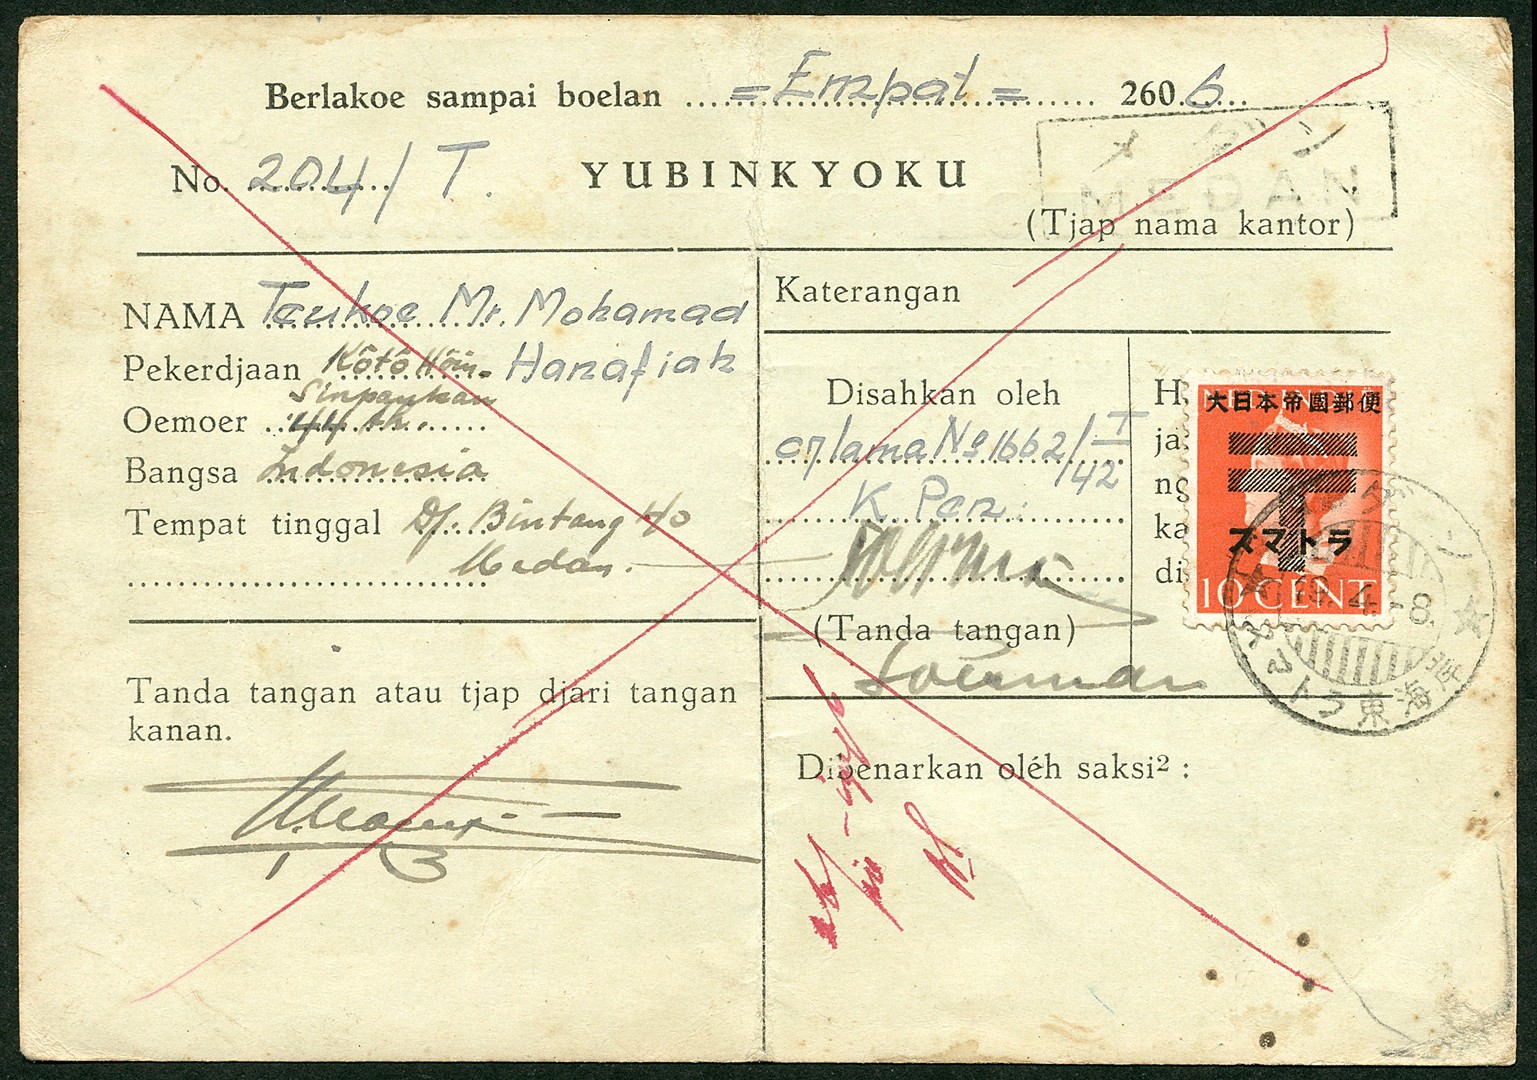 Berlakoe sampai boelan = Empat = 2606
No. 204/T. YUBINKYOKU
メダン
MEDAN
(Tjap nama kantor)
NAMA Teukoe Mr. Mohamad
Hanafiah
Pekerdjaan Kôtô Hôin
Oemoer 44 th.
Bangsa Indonesia
Tempat tinggal Dj. Bintang 40
Medan.
Tanda tangan atau tjap djari tangan
kanan.
Katerangan
Disahkan oleh
lama No 1662/I
/42
K. Pen.
(Tanda tangan)
Soerman
H
ja
ng
ka
di
大日本帝國郵便
スマトラ
10 CENT
メダン
4.-8.
スマトラ東海岸
Dibenarkan oléh saksi² :